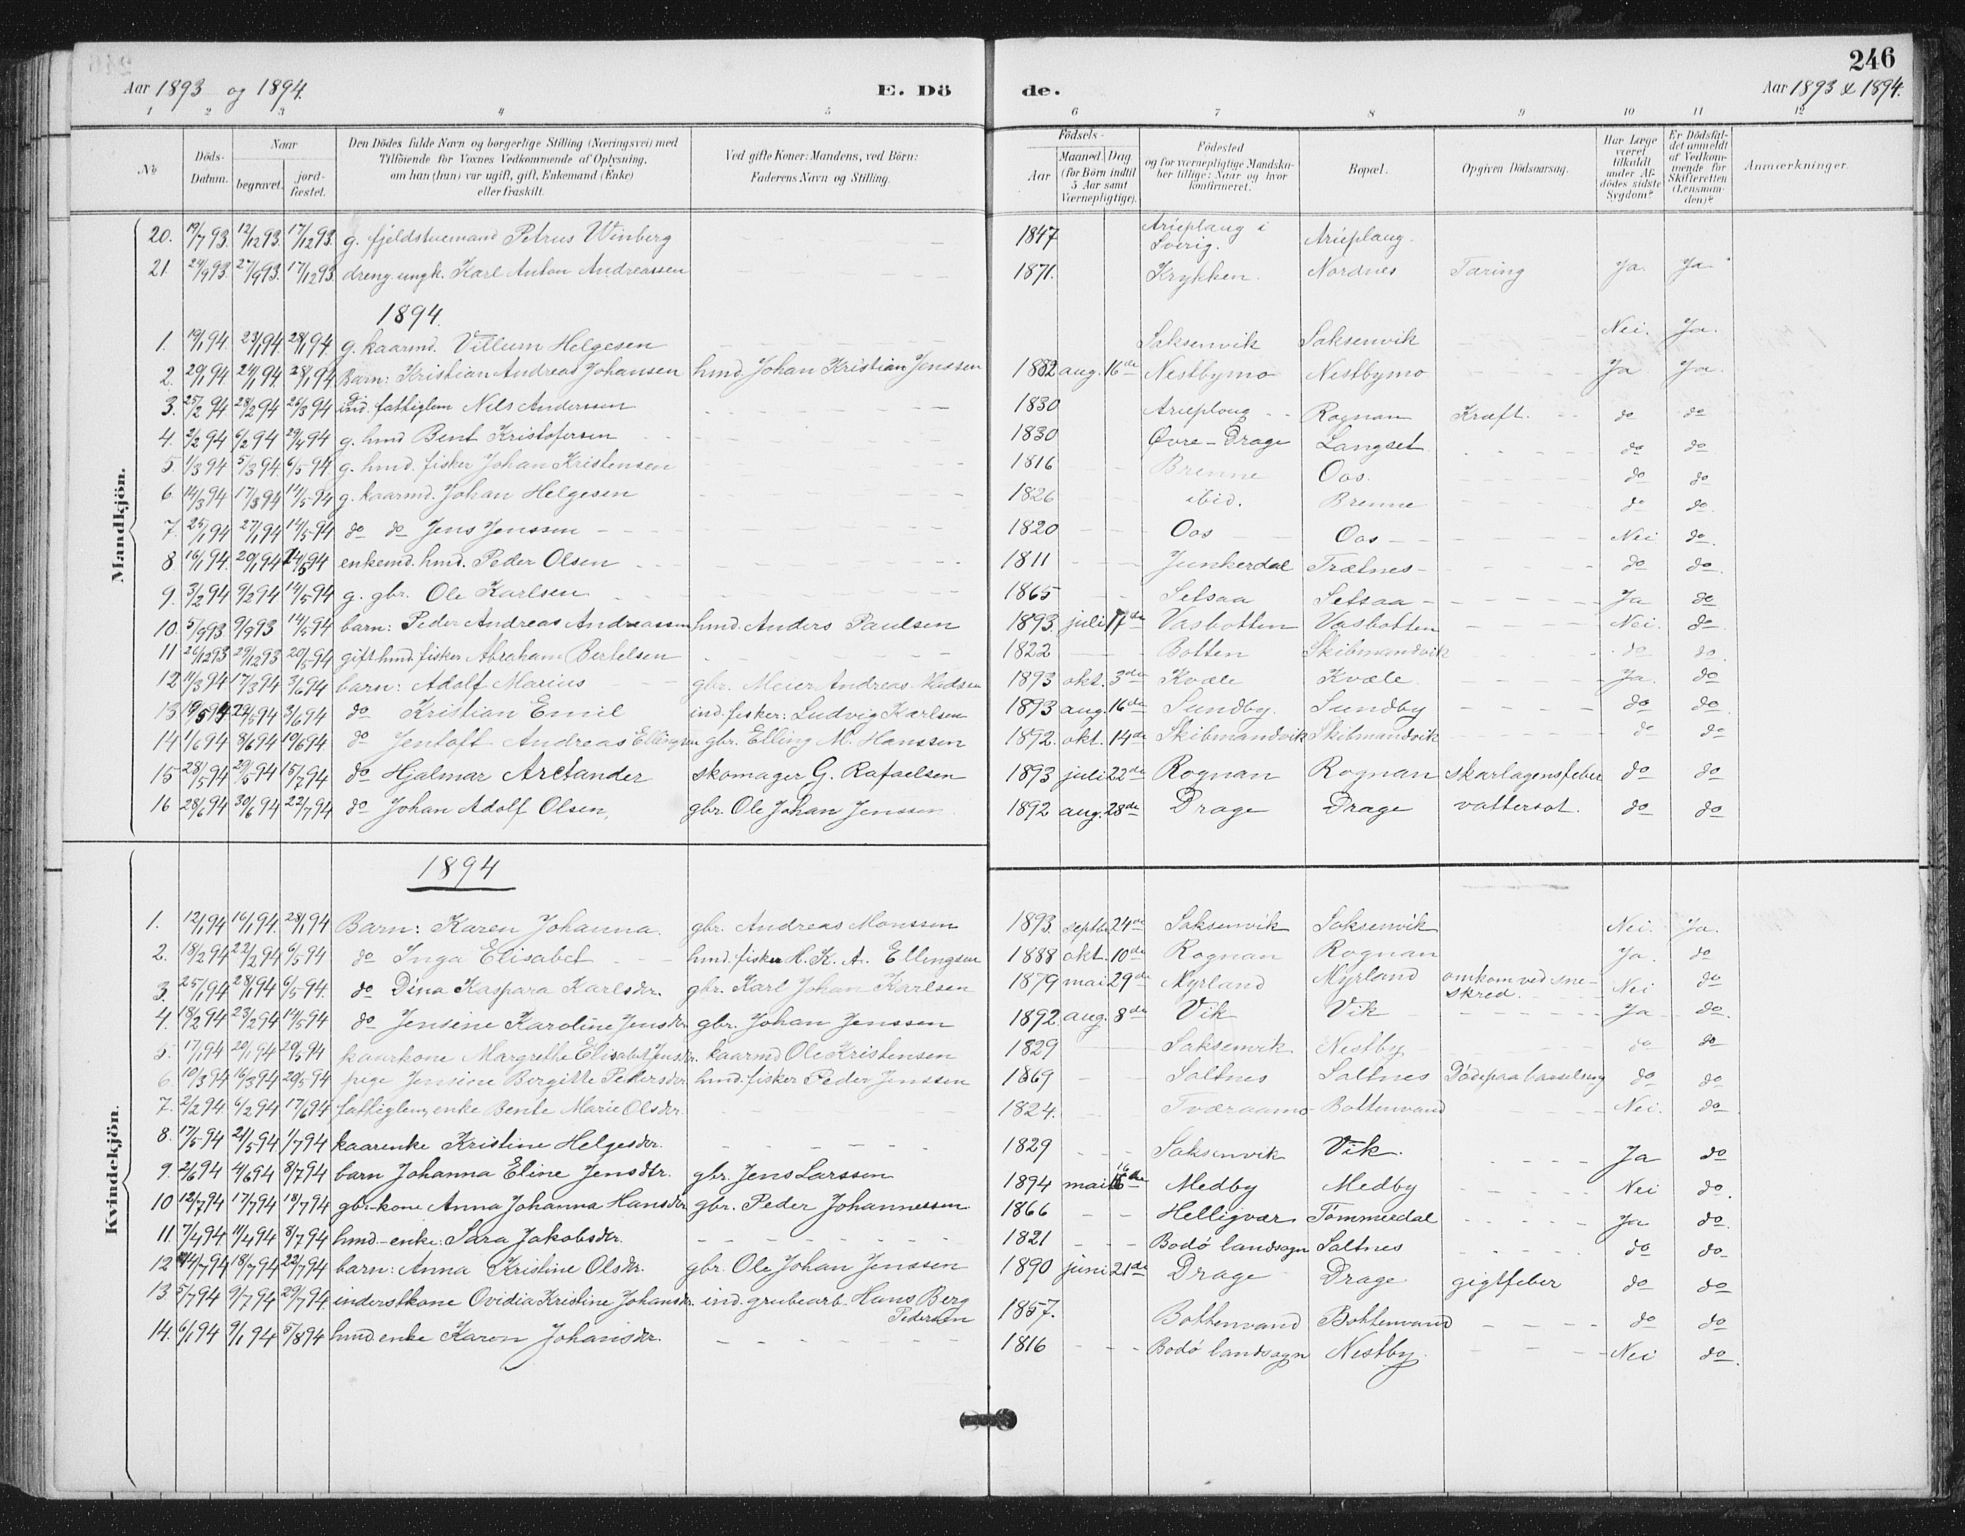 246
Aar 1893 og 1894. E. Dö de. Aar 1893 & 1894.
1 2 3 4 5 6 7 8 9 10 11 12
No
Döds-Datum.
Naar
begravet.
jordfæstet.
Den Dödes fulde Navn og borgerlige Stilling (Næringsvei) med Tilföiende for Voxnes Vedkommende af Oplysning, om han (hun) var ugift, gift, Enkemand (Enke) eller fraskilt.
Ved gifte Koner: Mandens, ved Börn: Faderens Navn og Stilling.
Födsels-
Aar
Maaned. Dag (for Börn indtil 5 Aar samt Værnepligtige).
Födested og for værnepligtige Mandskaber tillige: Naar og hvor konfirmeret.
Bopæl.
Opgiven Dödsaarsag.
Har Læge været tilkaldt under Afdödes sidste Sygdom?
Er Dödsfaldet anmeldt af Vedkommende for Skifteretten (Lensmanden)?
Anmærkninger.
Mandkjön.
20. 19/7 93. 12/12 93. 17/12 93. g. fjeldstuemand Petrus Winberg 1847 Arieplaug i Sverig. Arieplaug.
21. 24/9 93. 27/9 93. 17/12 93. dreng. ungk. Karl Anton Andreassen 1871. Krykken. Nordnes Tæring Ja. Ja
1894.
1. 19/1 94. 23/1 94. 28/1 94 g. kaarmd. Villum Helgesen Saksenvik Saksenvik Nei. Ja.
2. 20/1 94 24/1 94 28/1 94 Barn: Kristian Andreas Johansen hmd. Johan Kristian Jenssen 1882 aug. 16de Nestbymo Nestbymo Ja Ja.
3. 25/2 94 28/2 94 26/3 94 ind. fattiglem Nels Anderssen 1830 Arieploug Rognan Kræft. do do
4. 2/2 94 6/2 94 29/4 94 g. hmd Bent Kristofersen 1830 Øvre-Drage Langset do do
5 1/3 94 5/3 94. 6/5 94 g. hmd. fisker Johan Kristensen 1816 Brenne Oos. do do
6. 14/3 94 17/3 94 14/5 94 g. kaarmd. Johan Helgesen 1826 ibid. Brenne do do.
7. 25/1 94 27/1 94 14/5 94 do do Jens Jenssen 1820 Oos Oos Nei do.
8 16/1 94. 20/1 94 14/5 94 enkemd. hmd. Peder Olsen 1811 Junkerdal Trætnes do do.
9. 3/2 94 9/2 94 14/5 94 g. gbr. Ole Karlsen 1865 Setsaa Setsaa Ja do
10. 5/9 93 9/9 93 14/5 94 barn: Peder Andreas Andreassen hmd. Anders Paulsen 1893. juli 17de Vasbotten Vasbotten Nei. do.
11 26/12 93 29/12 93 20/5 94 gift hmd. fisker Abraham Bertelsen 1822 Botten Skibmandvik do do.
12 11/3 94 17/3 94 3/6 94 barn: Adolf Marius gbr. Meier Andreas 1893 okt. 3de Kvæle Kvæle Ja. do
13 19/5 94 29/5 94 3/6 94 do Kristian Emil ind. fisker: Ludvig Karlsen 1893 aug. 16de Sundby. Sundby do do.
14 1/6 94 8/6 94 10/6 94 do Jentoft Andreas Ellingsen gbr. Elling M. Hanssen 1892. okt. 14de Skibmandvik Skibmandvik do do
15 28/5 94 29/5 94 15/7 94 do Hjalmar Arctander skomager G. Rafaelsen 1893 juli 22de Rognan Rognan skarlagensfeber do do
16 28/6 94 30/6 94 22/7 94 do Johan Adolf Olsen, gbr. Ole Johan Jenssen 1892 aug. 28de Drage Drage vattersot. do do
Kvindekjön.
1894
1. 12/1 94 16/1 94. 28/1 94 Barn: Karen Johanna. gbr. Andreas Monssen 1893 septbr. 24de Saksenvik Saksenvik Nei. Ja.
2. 18/2 94 22/2 94 6/5 94 do Inga Elisabet hmd. fisker H. K. A. Ellingsen 1888 okt. 10de Rognan Rognan Ja. do
3. 25/1 94 28/1 94 6/5 94. do Dina Kaspara Karlsdr. gbr. Karl Johan Karlsen 1879 mai 29de Myrland Myrland omkom ved sneskred. Nei do
4. 18/2 94 23/2 94 14/5 94 do Jensine Karoline Jensdr gbr. Johan Jenssen 1892. aug. 8de Vik Vik Ja do.
5. 17/1 94 20/1 94 20/5 94 kaarkone Margrethe Elisabet Jensdr. kaarmd Ole Kristensen 1829 Saksenvik Nestby do do
6. 10/3 94 16/3 94 20/5 94 pige Jensine Bergitte Pedersdr hmd. fisker Peder Jenssen 1869 Saltnes Saltnes Döde paa barselseng do do
7. 2/2 94 6/2 94 17/6 94 fattiglem, enke Bente Marie Olsdr. 1824. Tværaamo Bottenvand Nei. do
8. 17/5 94 21/5 94 1/7 94 kaarenke Kristine Helgesdr. 1829 Saksenvik Vik. Ja do
9. 2/6 94 4/6 94 8/7 94 barn Johanna Eline Jensdtr. gbr. Jens Larssen 1894 mai 16de Medby Medby Nei do.
10 12/7 94 17/7 94 18/7 94 gbr-kone Anna Johanna Hansdr gbr. Peder Johannessen 1866 Helligvær Tömmerdal Ja do.
11. 7/4 94 11/4 94 8/7 94 hmd-enke. Sara Jakobsdr. 1821 Bodø landsogn Saltnes do do
12 14/7 94 18/7 94 22/7 94 barn: Anna Kristine Olsdr. gbr. Ole Johan Jenssen 1890 juni 21de Drage Drage gigtfeber do do
13 5/7 94 9/7 94 29/7 94 inderstkone Ovidia Kristine Johansdr. ind. grubearb. Hans Berg Pedersen 1857. Bottenvand Bottenvand do do
14. 6/1 94 9/1 94 5/8 94 hmd. enke Karen Johansdr. 1816 Bodø landsogn Nestby. Nei do.